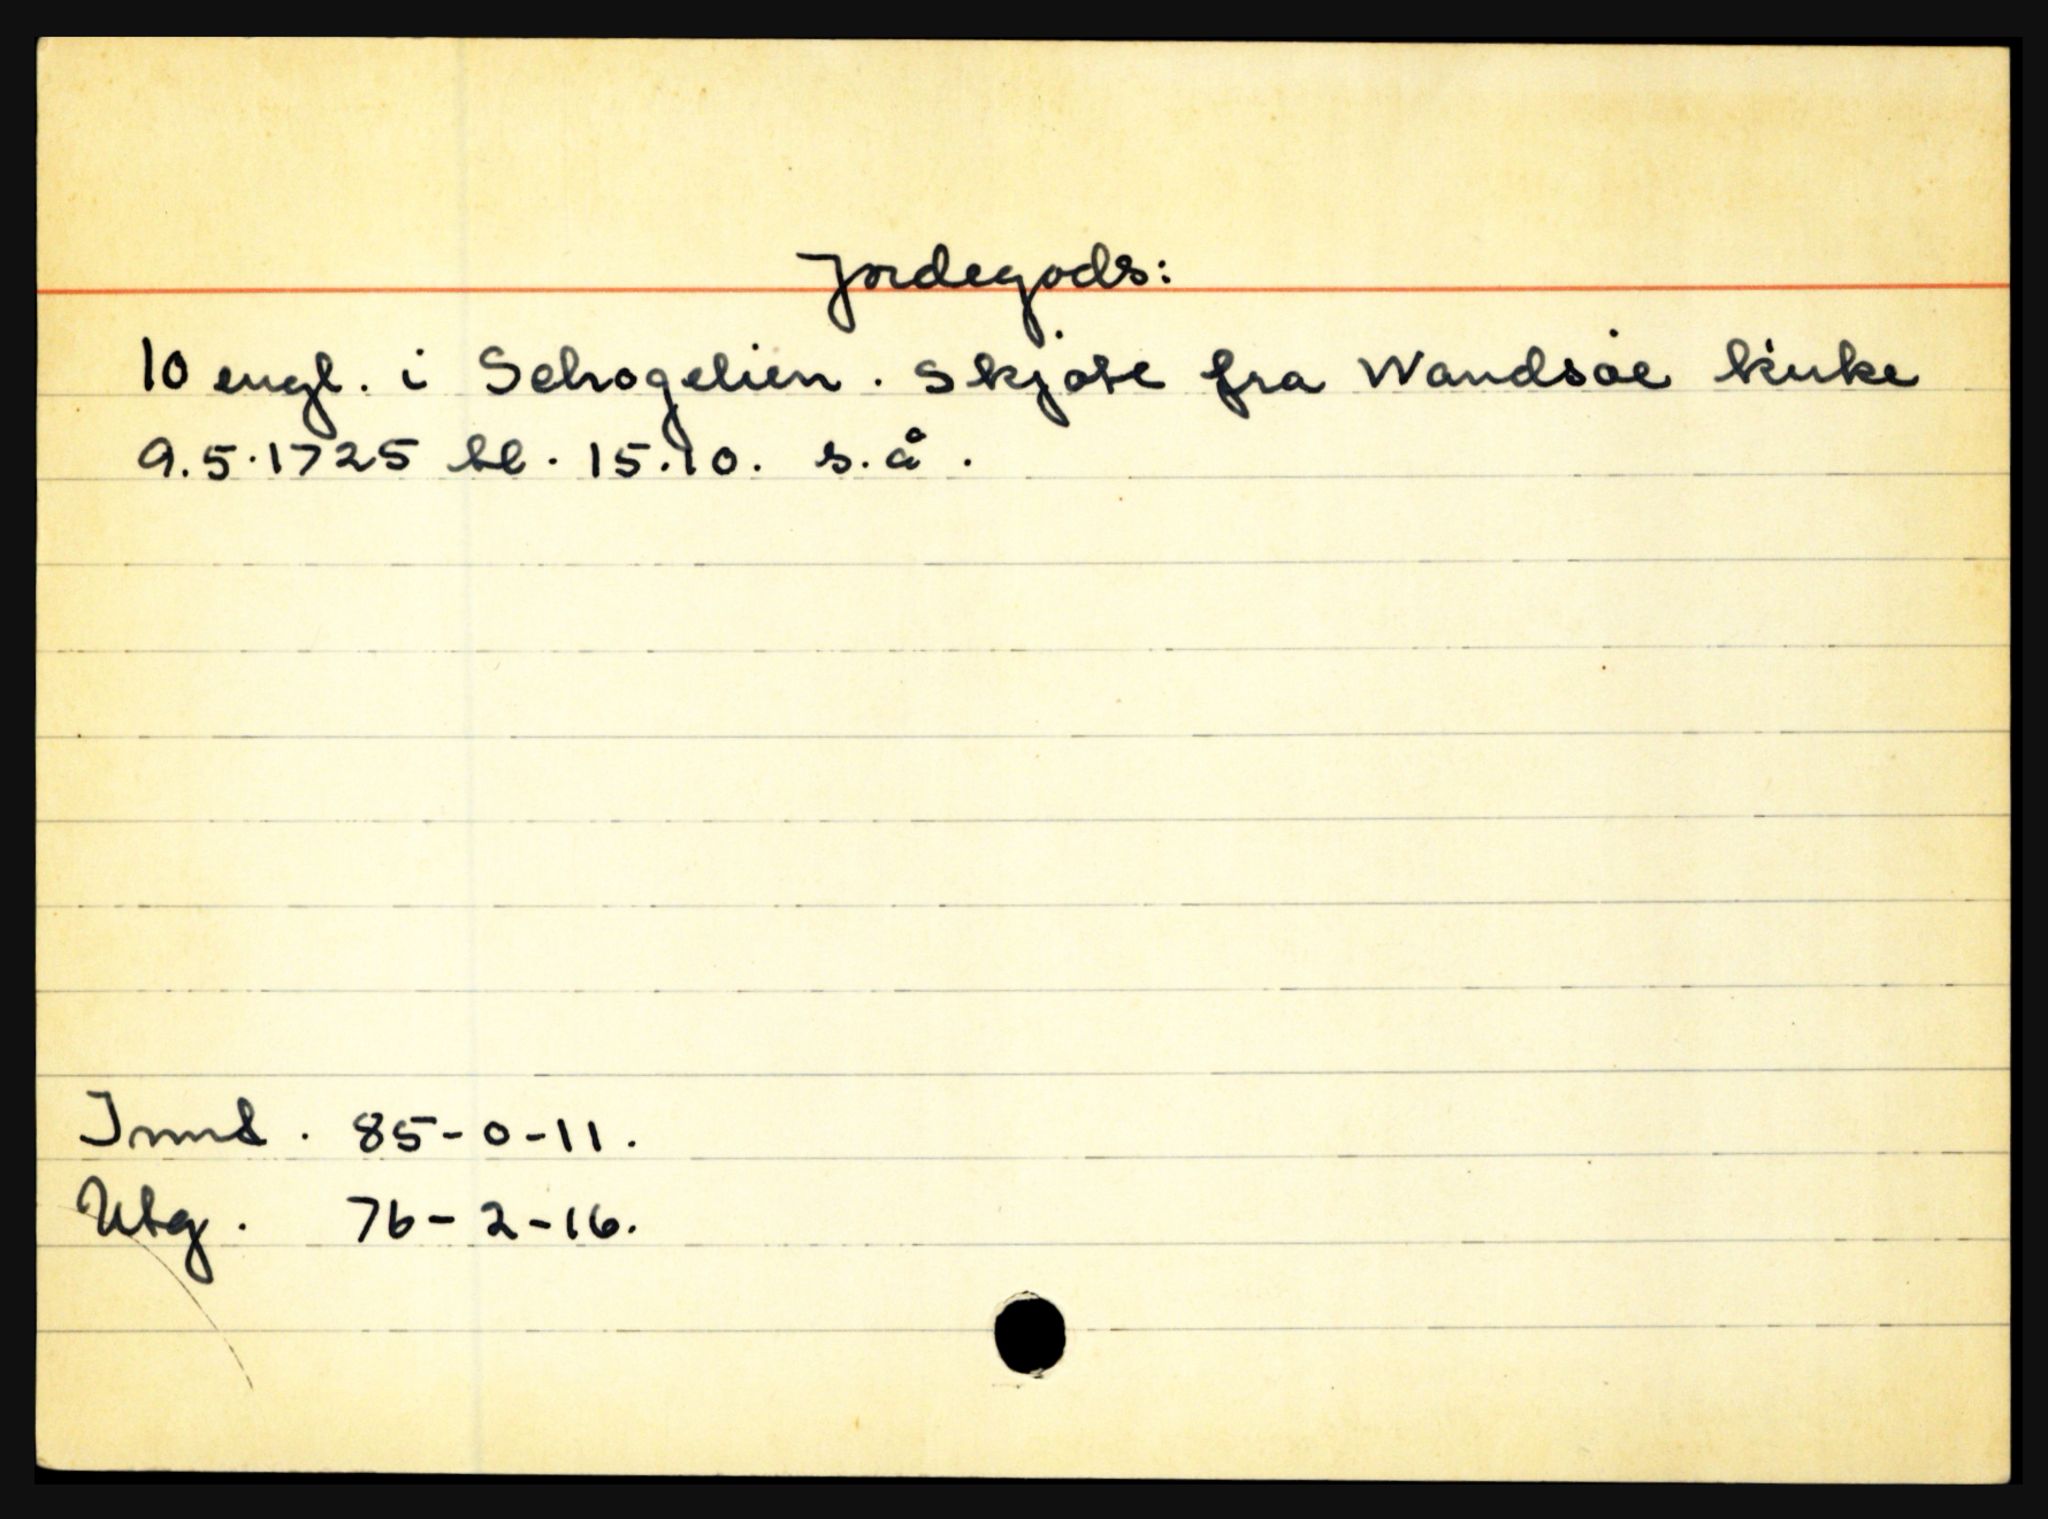 Jordegods:
10 engl. i Schogelien. Skjøte fra Wandsøe kirke
9.5.1725 tl. 15.10. s.å.
Innt. 85-0-11.
Utg. 76-2-16.